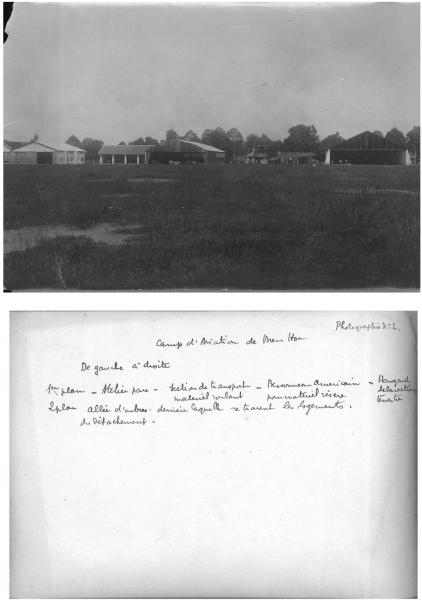 Photographie N° 2.
Camp d'Aviation de Bien Hoa
De gauche à droite
1er plan - Atelier parc - Section de transport - Bessonneau Américain - Hangard
matériel roulant pour matériel réserve de la section
2 plan Allée d'arbres. derrière laquelle se trouvent les logements.
du détachement.